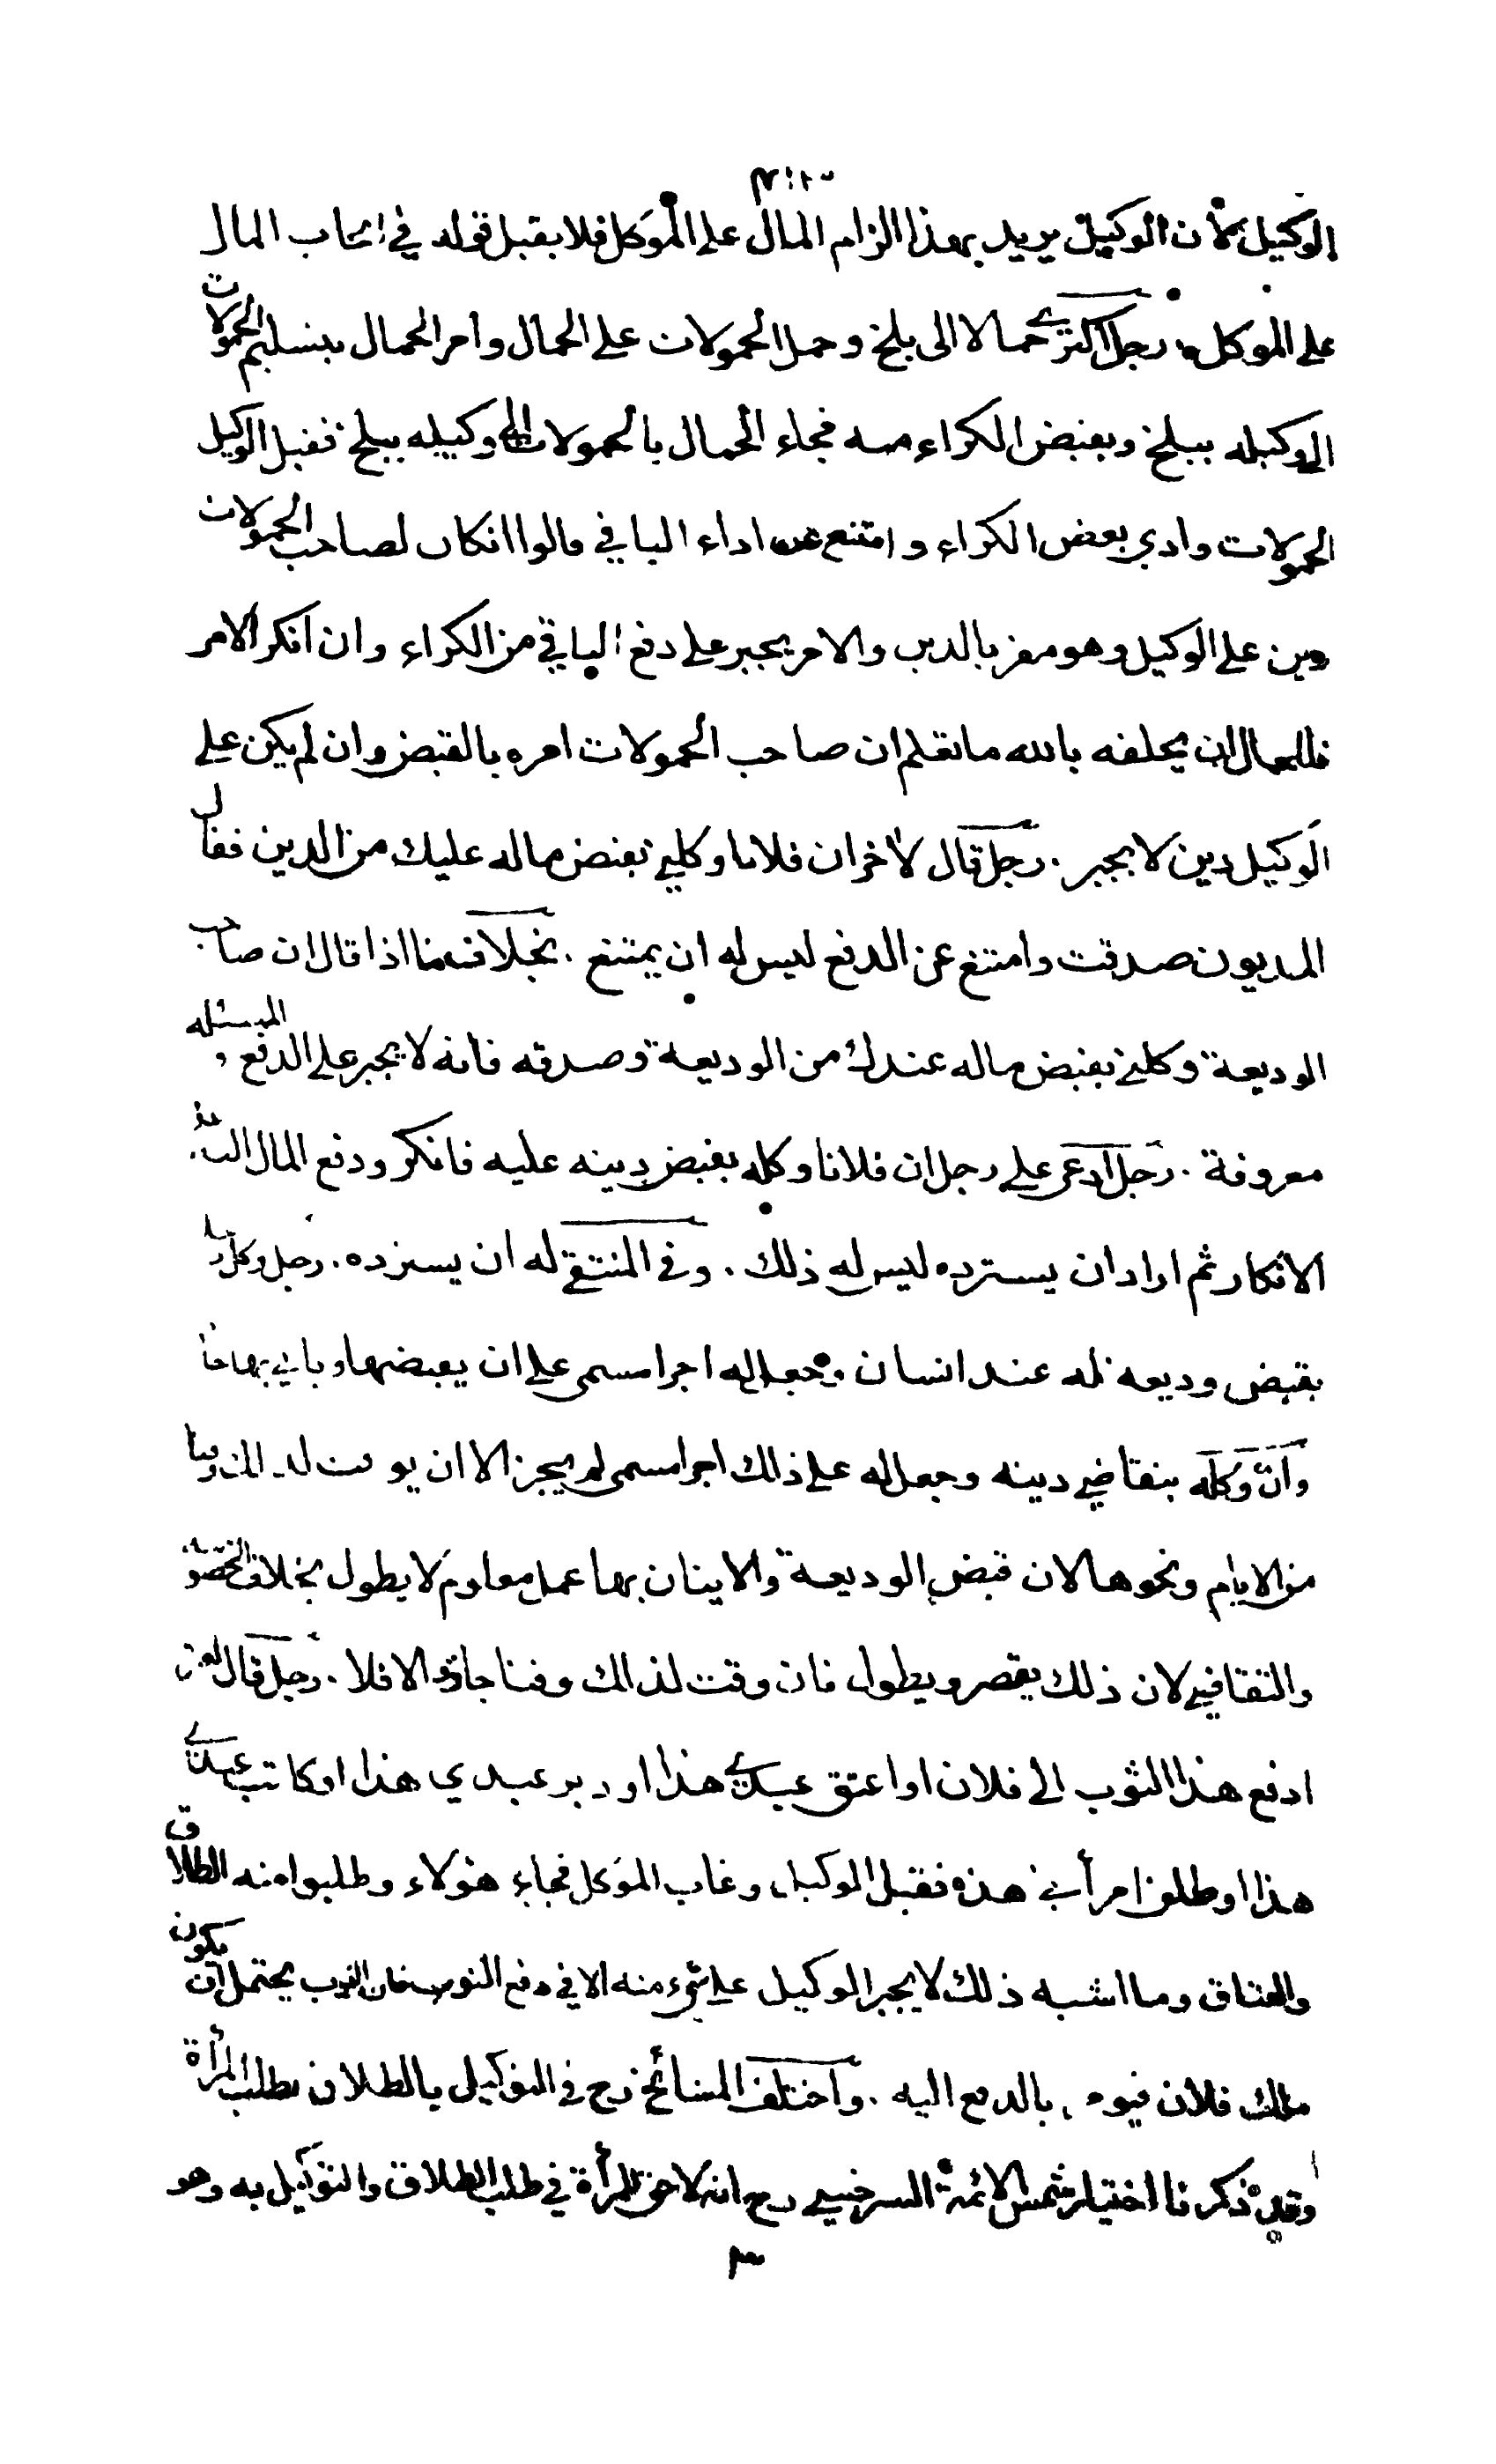 الوكيل لان الوكيل يريد بهذا الزام المال على الموكل فلا يقبل قوله في ايجاب المال
على الموكل رجل اكترى حمالا الى بلخ وحمل الحمولات على الحمال وامر الحمال بتسليم الحمولات
الى وكيله ببلخ وبقبض الكراء منه فجاء الحمال بالحمولات الى وكيله ببلخ فقبل الوكيل
الحمولات وادى بعض الكراء وامتنع عن اداء الباقي قالوا انكان لصاحب الحمولات
دين على الوكيل وهو مقر بالدين والامر يجبر على دفع الباقي من الكراء وان انكر الامر
فللحمال ان يحلفه بالله ما تعلم ان صاحب الحمولات امره بالقبض وان لم يكن على
الوكيل دين لا يجبر . رجل قال لاخر ان فلانا وكلني بقبض ماله عليك من الدين فقال
المديون صدقت وامتنع عن الدفع ليس له ان يمتنع . بخلاف ما اذا قال ان صاحب
الوديعة وكلني بقبض ماله عندك من الوديعة وصدقه فانه لا يجبر على الدفع والمسئله
معروفة . رجل ادعى على رجل ان فلانا وكله بقبض دينه عليه فانكر ودفع المال اليه على
الانكار ثم اراد ان يسترده ليس له ذلك . وفي المنتقى له ان يسترده . رجل وكل رجلا
بقبض وديعة له عند انسان وجعل له اجرا مسمى على ان يقبضها وياتي بها جاز
وان وكله بتقاضي دينه وجعل له على ذلك اجرا مسمى لم يجز الا ان يوقت له
من الايام ونحوها لان قبض الوديعة والاتيان بها عمل معلوم لا يطول بخلاف الخصومة
والتقاضي لان ذلك يقصر ويطول فان وقت لذلك وقتا جاز والا فلا . رجل قال لغيره
ادفع هذا الثوب الى فلان او اعتق عبدي هذا او دبر عبدي هذا او كاتب عبدي
هذا او طلق امرأتي هذه فقبل الوكيل وغاب الموكل فجاء هؤلاء وطلبوا منه الطلاق
والعتاق وما اشبه ذلك لا يجبر الوكيل على شيء منه الا في دفع الثوب فان الثوب يحتمل ان يكون
ملك فلان فيؤمر بالدفع اليه . واختلف المشائخ رح في التوكيل بالطلاق بطلب المرأة
وقد ذكرنا اختيار شمس الائمة السرخسي رح انه لا حق للمرأة في طلب الطلاق والتوكيل به وهو